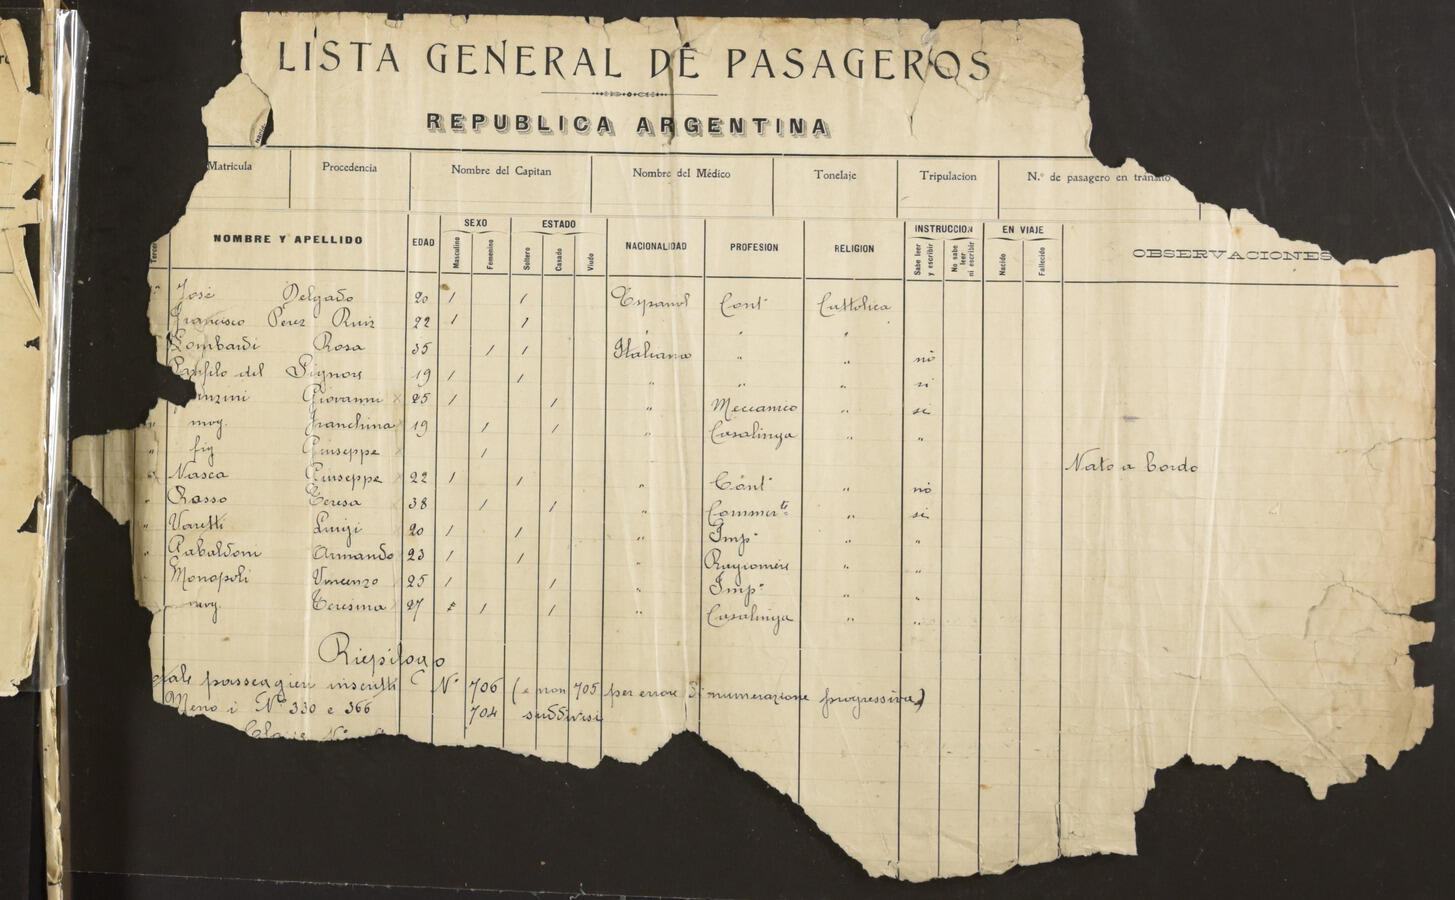 LISTA GENERAL DE PASAGEROS
REPUBLICA ARGENTINA
Matricula Procedencia Nombre del Capitan Nombre del Médico Tonelaje Tripulacion N.º de pasagero en tránsito
NOMBRE Y APELLIDO EDAD SEXO Masculino Femenino ESTADO Soltero Casado Viudo NACIONALIDAD PROFESIÓN RELIGION INSTRUCCION Sabe leer y escribir No sabe leer ni escribir EN VIAJE Nacido Fallecido OBSERVACIONES
José Delgado 20 / / Espanol Cont. Cattolica
Francisco Perez Ruiz 22 / / " " "
Lombardi Rosa 35 / / Italiana " " no
Panfilo del Signore 19 / / " " " si
Giovanni 25 / / " Meccanico " si
mog. Franchina 19 / / " Casalinga " "
fig Giuseppe / Nato a bordo
Nasca Giuseppe 22 / / " Cont. " no
Rasso Teresa 38 / / " Commerte " si
Varetti Luigi 20 / / " Imp. " "
Gabaldoni Armando 23 / / " Ragioniere " "
Monopoli Vincenzo 25 / / " Imp. " "
mog. Teresina 27 / / " Casalinga " "
Riepilogo
passeggieri inscritti N° 706 (e non 705 per errore di numerazione progressiva)
Meno i Ni 330 e 366 704 suddivisi